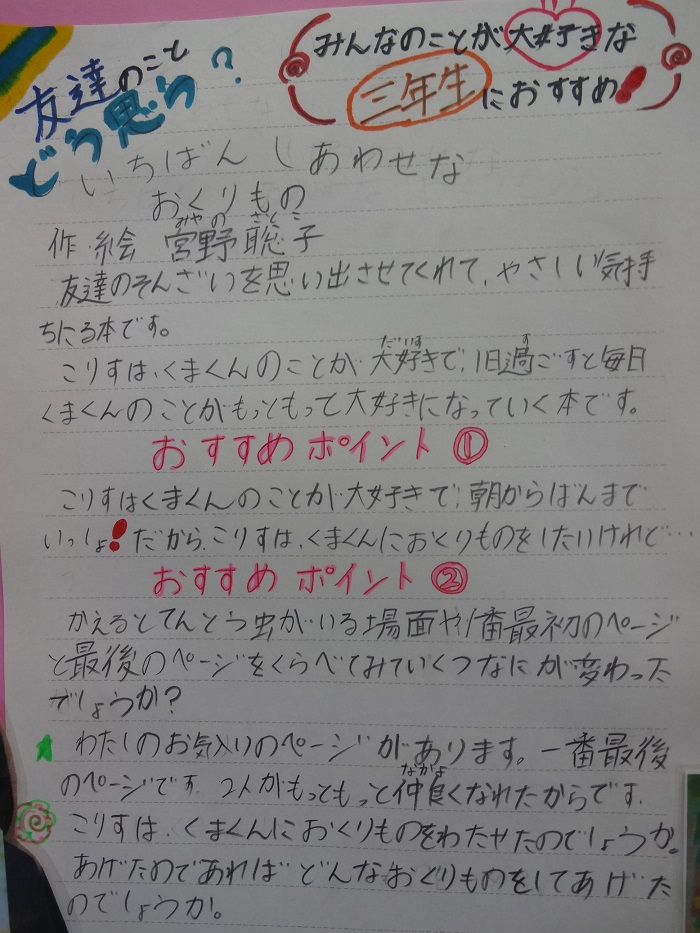 友達のこと
どう思う?
みんなのことが大好きな
三年生におすすめ!
いちばんしあわせな
おくりもの
みやの さく こ
作・絵 宮野 聡子
友達のそんざいを思い出させてくれて、やさしい気持
ちにる本です。
だいす す
こりすは、くまくんのことが大好きで、1日過ごすと毎日
くまくんのことがもっともって大好きになっていく本です。
おすすめポイント①
こりすはくまくんのことが大好きで、朝からばんまで
いっしょ!だから、こりすは、くまくんにおくりものをしたいけれど…
おすすめポイント②
かえるとてんとう虫がいる場面や1番最初のページ
と最後のページをくらべてみていくつなにが変わった
でしょうか?
わたしのお気入りのページがあります。一番最後
なかよ
のページです。2人がもっともっと仲良くなれたからです。
こりすは、くまくんにおくりものをわたせたのでしょうか。
あげたのであればどんなおくりものをしてあげた
のでしょうか。